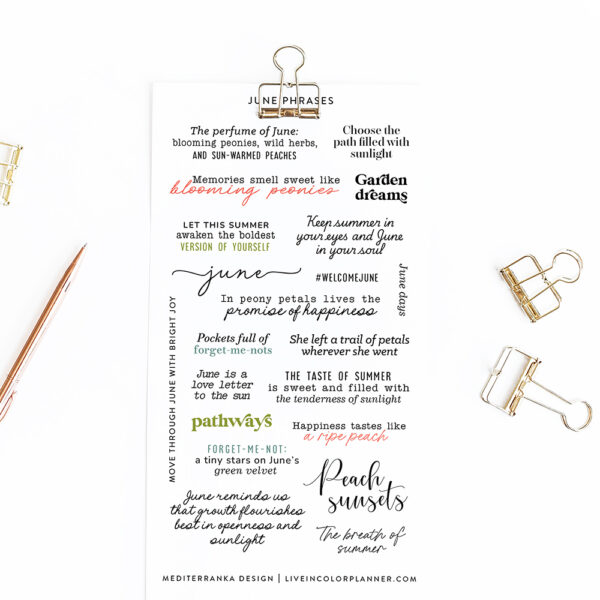 JUNE PHRASES
The perfume of June:
blooming peonies, wild herbs,
AND SUN-WARMED PEACHES
Choose the
path filled with
sunlight
Memories smell sweet like
blooming peonies
Garden
dreams
LET THIS SUMMER
awaken the boldest
VERSION OF YOURSELF
Keep summer in
your eyes and June
in your soul
june
#WELCOMEJUNE
June days
In peony petals lives the
promise of happiness
MOVE THROUGH JUNE WITH BRIGHT JOY
Pockets full of
forget-me-nots
She left a trail of petals
wherever she went
June is a
love letter
to the sun
THE TASTE OF SUMMER
is sweet and filled with
the tenderness of sunlight
pathways
Happiness tastes like
a ripe peach
FORGET-ME-NOT:
a tiny stars on June's
green velvet
Peach
sunsets
June reminds us
that growth flourishes
best in openness and
sunlight
The breath of
summer
MEDITERRANKA DESIGN | LIVEINCOLORPLANNER.COM